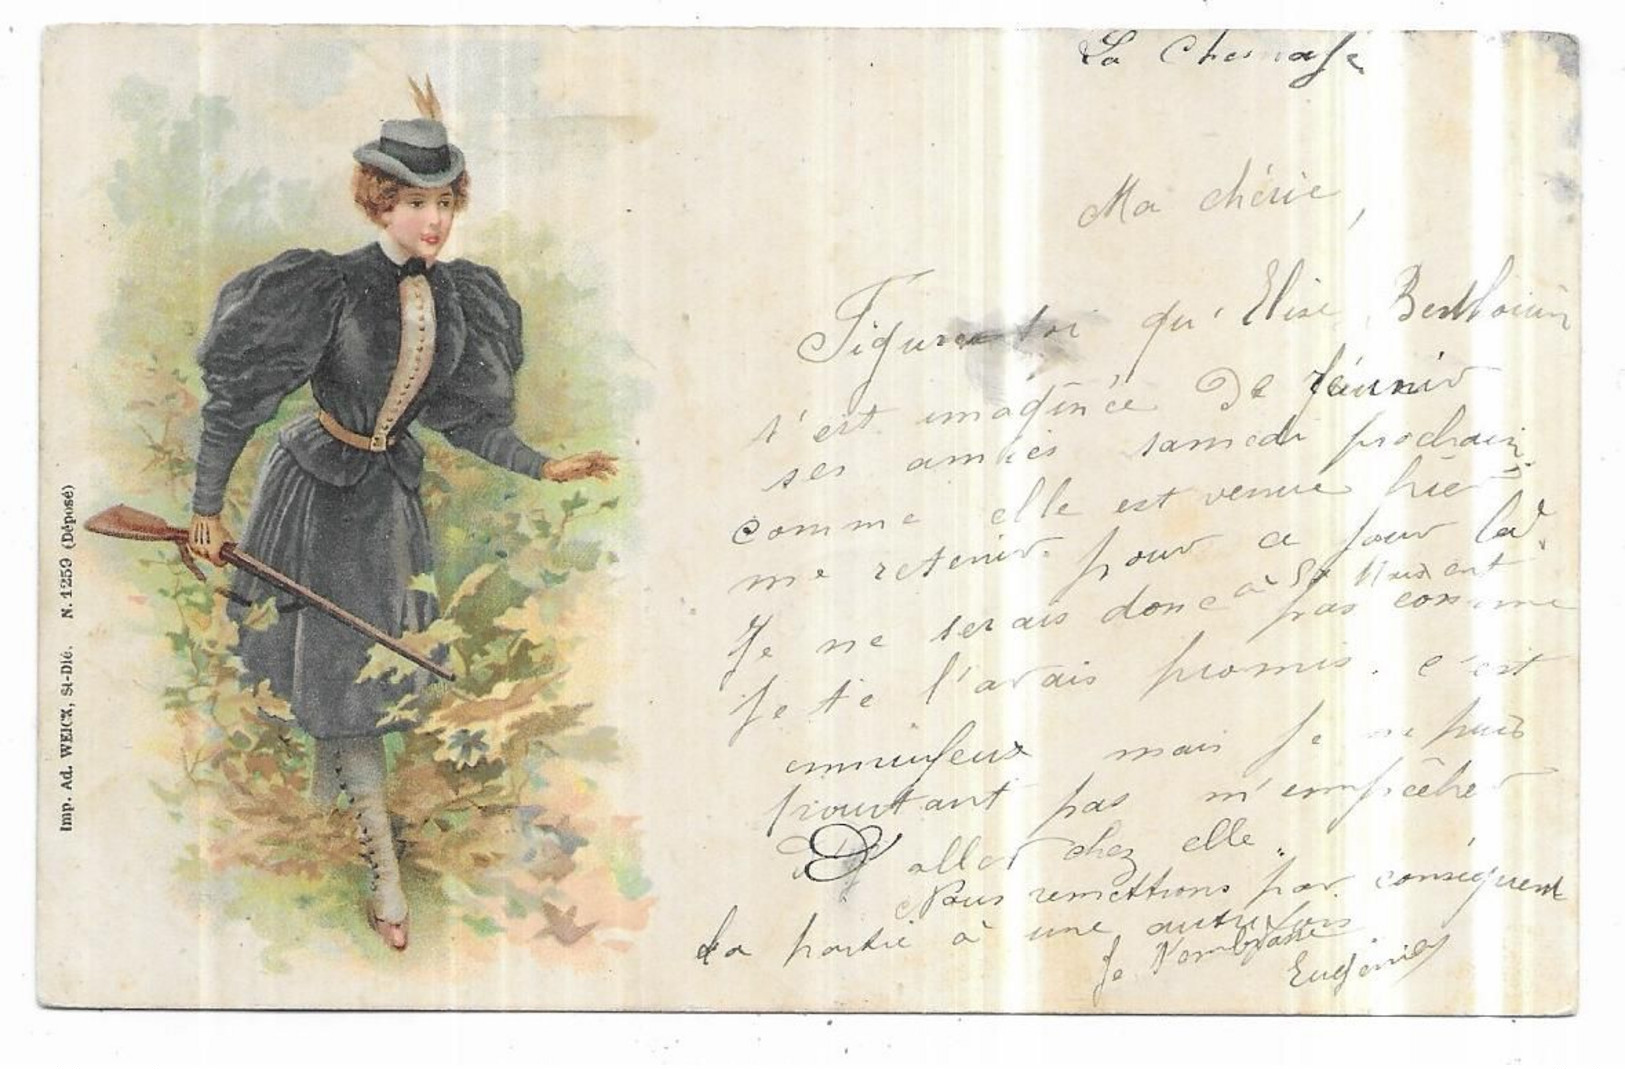 Imp. Ad. WEICK, St-Dié. N. 1259 (Déposé)
La
Ma chérie,
Figure toi qu'Elise
s'est imaginée de réunir
ses amies samedi prochain,
comme elle est venue hier
me retenir pour ce jour là.
Je ne serais donc à St Vincent
pas comme
je te l'avais promis. c'est
ennuyeux mais je ne puis
pourtant pas m'empêcher
D'aller chez elle.
Nous remettrons par conséquent
la partie à une autre fois
Je t'embrasse
Eugénie